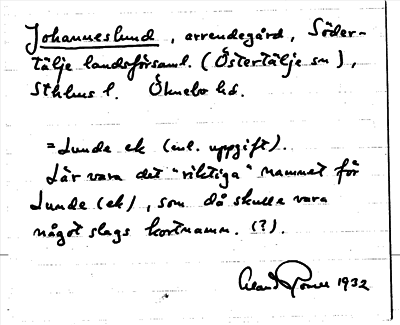 Johanneslund, arrendegård, Söder-
tälje landsförsaml. (Östertälje sn),
Sthlms l. Öknebo hd.
= Lunda ek (enl. uppgift).
Lär vara det "riktiga" namnet för
Lunda (ek), som då skulle vara
något slags kortnamn. (?).
1932